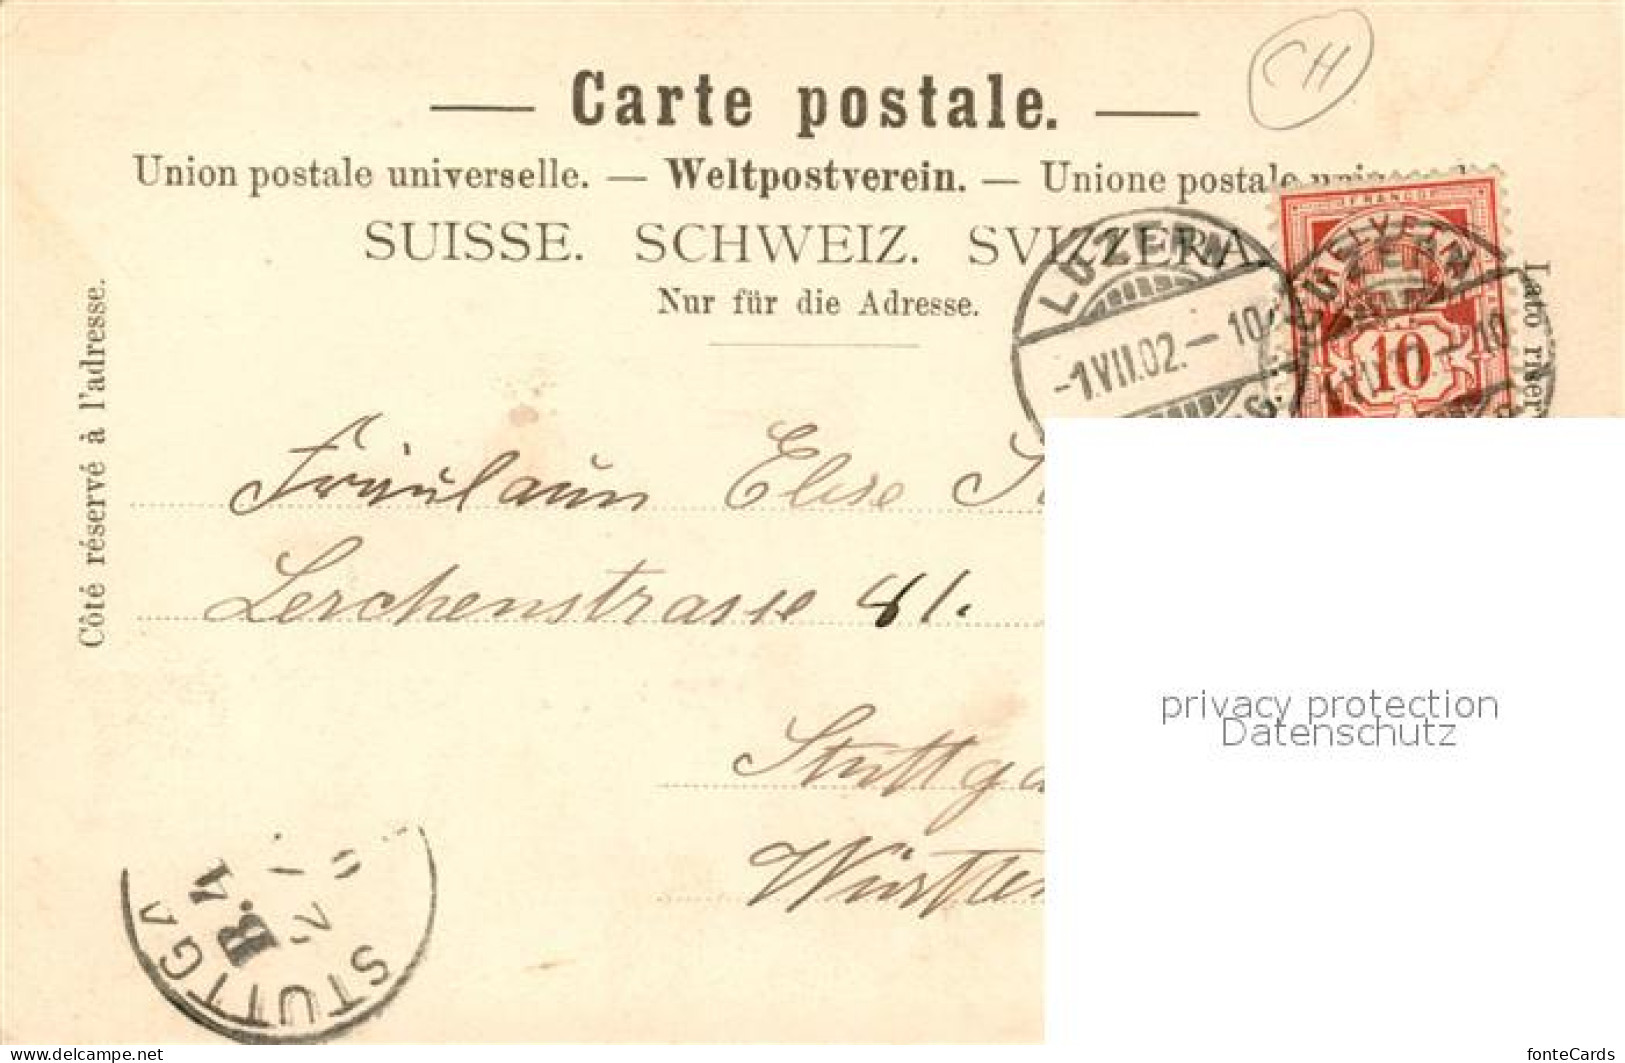 CH
— Carte postale. —
Union postale universelle. — Weltpostverein. — Unione postale
SUISSE. SCHWEIZ. SVIZZERA.
Nur für die Adresse.
Côté réservé à l'adresse.
Lato riser
FRANCO
HELVETIA
10
LUZERN
-1.VII.02.-10
LUZERN
-10
Fräulaun Elise
Lerchenstrasse 81.
Stuttga
Württem
STUTTGA
B.4
privacy protection
Datenschutz
www.delcampe.net
fonteCards